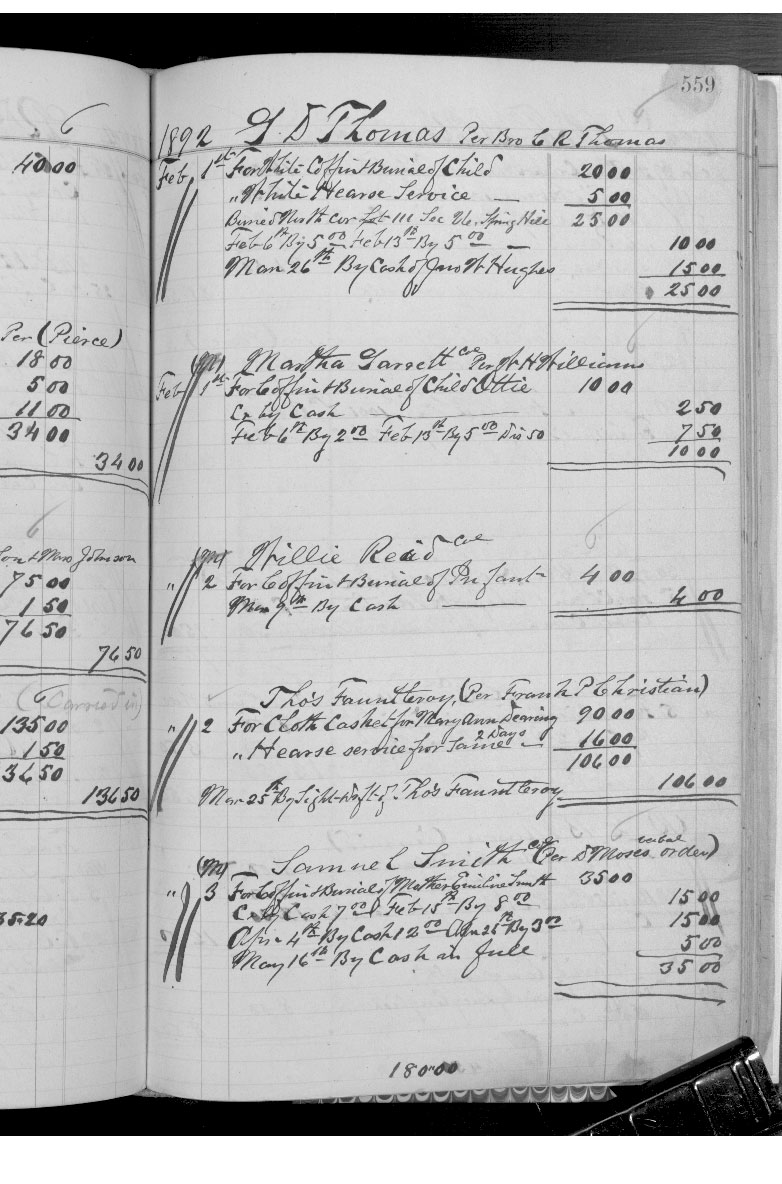 6
40.00
Per (Pierce)
18 00
5 00
11 00
34 00
34 00
6
Son & Mrs Johnson
75 00
1 50
76 50
76 50
6
(Carried in)
135 00
1 50
136 50
136 50
35.20
559
1892 G D Thomas Per Bro C R Thomas
Feb 1st For White Coffin & Burial of Child 20 00
" White Hearse Service — 5 00
Buried North cor Lot 111 Sec 26. Spring Hill 25 00
Feb 6th By 5 00 Feb 13th By 5 00 — 10 00
Mar 26th By Cash of Jno W Hughes 15 00
25 00
Martha Garrett col Per W H Williams
Feb 1st For Coffin & Burial of Child Ottie 10 00
Cr by Cash 2 50
Feb 6th By 2 00 Feb 13th By 5 00 Dis 50 7 50
10 00
Willie Reid col
6
" 2 For Coffin & Burial of Infant 4 00
Mar 9th By Cash 4 00
Tho's Fauntleroy, (Per Frank P Christian)
" 2 For Cloth Casket for Mary Ann Dearing 90 00
" Hearse service for Same 2 Days — 16 00
106 00
Mar 25th By Sight Draft of Tho's Fauntleroy 106 00
(M) Samuel Smith col (Per D Moses verbal order)
" 3 For Coffin & Burial of Mother Emiline Smith 35 00
Cr by Cash 7 00 & Feb 15th By 8 00 15 00
Apr 4th By Cash 12 00 Apr 25th By 3 00 15 00
May 16th By Cash in full 5 00
35 00
180.00